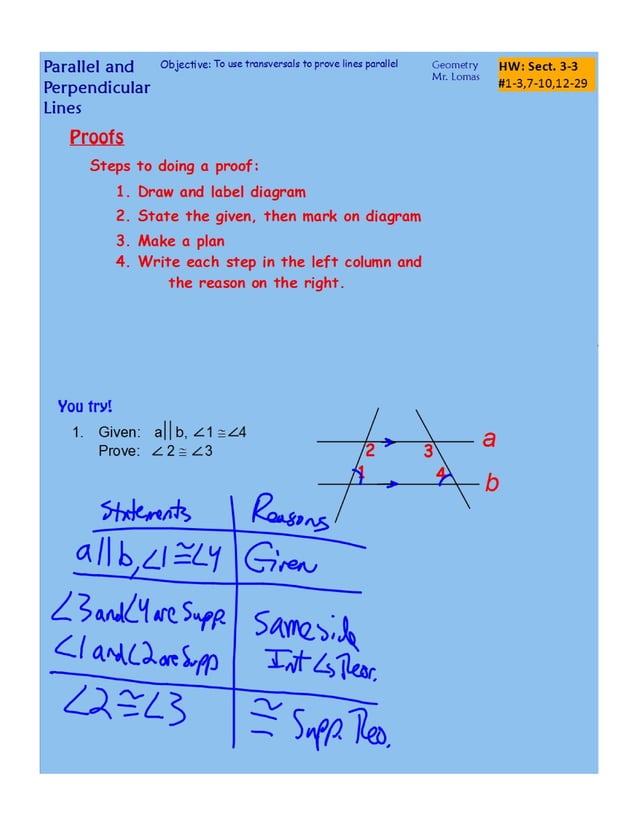 Parallel and
Perpendicular
Lines
Objective: To use transversals to prove lines parallel
Geometry
Mr. Lomas
HW: Sect. 3-3
#1-3,7-10,12-29
Proofs
Steps to doing a proof:
1. Draw and label diagram
2. State the given, then mark on diagram
3. Make a plan
4. Write each step in the left column and
the reason on the right.
You try!
1. Given: a||b, ∠1 ≅∠4
Prove: ∠2 ≅ ∠3
a
2 3
1 4
b
Statements Reasons
a||b, ∠1≅∠4 Given
∠3 and ∠4 are Supp.
∠1 and ∠2 are Supp
Same side
Int ∠s Teor.
∠2≅∠3
≅ Supp. Teo.